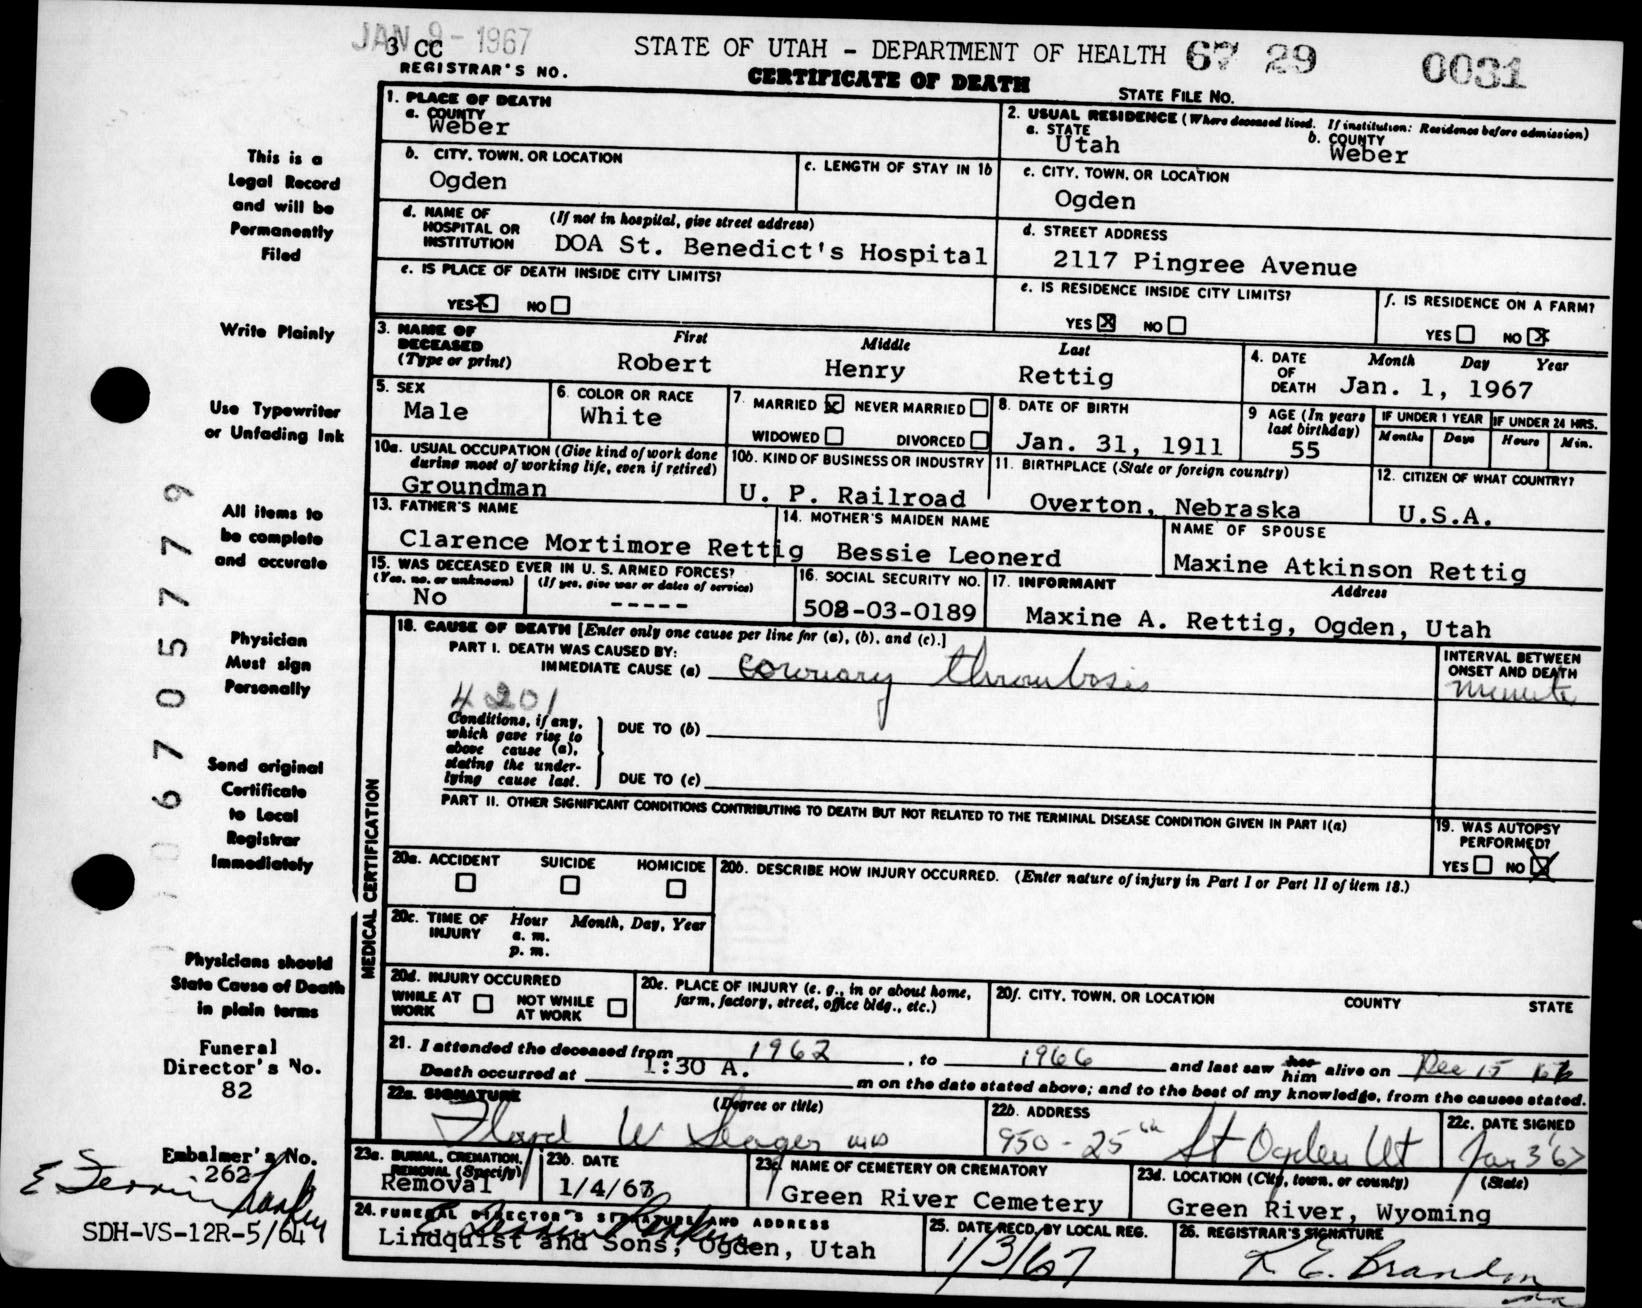 JAN 9 - 1967
3 CC
REGISTRAR'S NO.
STATE OF UTAH - DEPARTMENT OF HEALTH 67 29 0031
CERTIFICATE OF DEATH
STATE FILE NO.
This is a
Legal Record
and will be
Permanently
Filed
Write Plainly
Use Typewriter
or Unfading Ink
All items to
be complete
and accurate
Physician
Must sign
Personally
Send original
Certificate
to Local
Registrar
Immediately
Physicians should
State Cause of Death
in plain terms
Funeral
Director's No.
82
Embalmer's No.
262
SDH-VS-12R-5/64
067057779
1. PLACE OF DEATH
a. COUNTY
Weber
b. CITY, TOWN, OR LOCATION
Ogden
c. LENGTH OF STAY IN 1b
d. NAME OF HOSPITAL OR INSTITUTION (If not in hospital, give street address)
DOA St. Benedict's Hospital
e. IS PLACE OF DEATH INSIDE CITY LIMITS?
YES X NO
2. USUAL RESIDENCE (Where deceased lived. If institution: Residence before admission)
a. STATE
Utah
b. COUNTY
Weber
c. CITY, TOWN, OR LOCATION
Ogden
d. STREET ADDRESS
2117 Pingree Avenue
e. IS RESIDENCE INSIDE CITY LIMITS?
YES X NO
f. IS RESIDENCE ON A FARM?
YES NO X
3. NAME OF DECEASED (Type or print)
First Middle Last
Robert Henry Rettig
4. DATE OF DEATH
Month Day Year
Jan. 1, 1967
5. SEX
Male
6. COLOR OR RACE
White
7. MARRIED X NEVER MARRIED
WIDOWED DIVORCED
8. DATE OF BIRTH
Jan. 31, 1911
9 AGE (In years last birthday)
55
IF UNDER 1 YEAR
Months Days
IF UNDER 24 HRS.
Hours Min.
10a. USUAL OCCUPATION (Give kind of work done during most of working life, even if retired)
Groundman
10b. KIND OF BUSINESS OR INDUSTRY
U. P. Railroad
11. BIRTHPLACE (State or foreign country)
Overton, Nebraska
12. CITIZEN OF WHAT COUNTRY?
U.S.A.
13. FATHER'S NAME
Clarence Mortimore Rettig
14. MOTHER'S MAIDEN NAME
Bessie Leonerd
NAME OF SPOUSE
Maxine Atkinson Rettig
15. WAS DECEASED EVER IN U. S. ARMED FORCES?
(Yes, no, or unknown) (If yes, give war or dates of service)
No -----
16. SOCIAL SECURITY NO.
508-03-0189
17. INFORMANT Address
Maxine A. Rettig, Ogden, Utah
MEDICAL CERTIFICATION
18. CAUSE OF DEATH [Enter only one cause per line for (a), (b), and (c).]
PART I. DEATH WAS CAUSED BY:
IMMEDIATE CAUSE (a) coronary thrombosis
INTERVAL BETWEEN ONSET AND DEATH
minute
4201
Conditions, if any, which gave rise to above cause (a), stating the under-lying cause last.
DUE TO (b)
DUE TO (c)
PART II. OTHER SIGNIFICANT CONDITIONS CONTRIBUTING TO DEATH BUT NOT RELATED TO THE TERMINAL DISEASE CONDITION GIVEN IN PART I(a)
19. WAS AUTOPSY PERFORMED?
YES NO X
20a. ACCIDENT SUICIDE HOMICIDE
20b. DESCRIBE HOW INJURY OCCURRED. (Enter nature of injury in Part I or Part II of item 18.)
20c. TIME OF INJURY Hour Month, Day, Year
a. m.
p. m.
20d. INJURY OCCURRED
WHILE AT WORK NOT WHILE AT WORK
20e. PLACE OF INJURY (e. g., in or about home, farm, factory, street, office bldg., etc.)
20f. CITY, TOWN, OR LOCATION COUNTY STATE
21. I attended the deceased from 1962, to 1966 and last saw her him alive on Dec 15 66
Death occurred at 1:30 A. m on the date stated above; and to the best of my knowledge, from the causes stated.
22a. SIGNATURE (Degree or title)
Floyd W Seager MD
22b. ADDRESS
950 - 25th St Ogden Ut
22c. DATE SIGNED
Jan 3 '67
23a. BURIAL, CREMATION, REMOVAL (Specify)
Removal
23b. DATE
1/4/67
23c. NAME OF CEMETERY OR CREMATORY
Green River Cemetery
23d. LOCATION (City, town, or county) (State)
Green River, Wyoming
24. FUNERAL DIRECTOR'S SIGNATURE AND ADDRESS
Lindquist and Sons, Ogden, Utah
25. DATE RECD. BY LOCAL REG.
1/3/67
26. REGISTRAR'S SIGNATURE
K E. Brandon